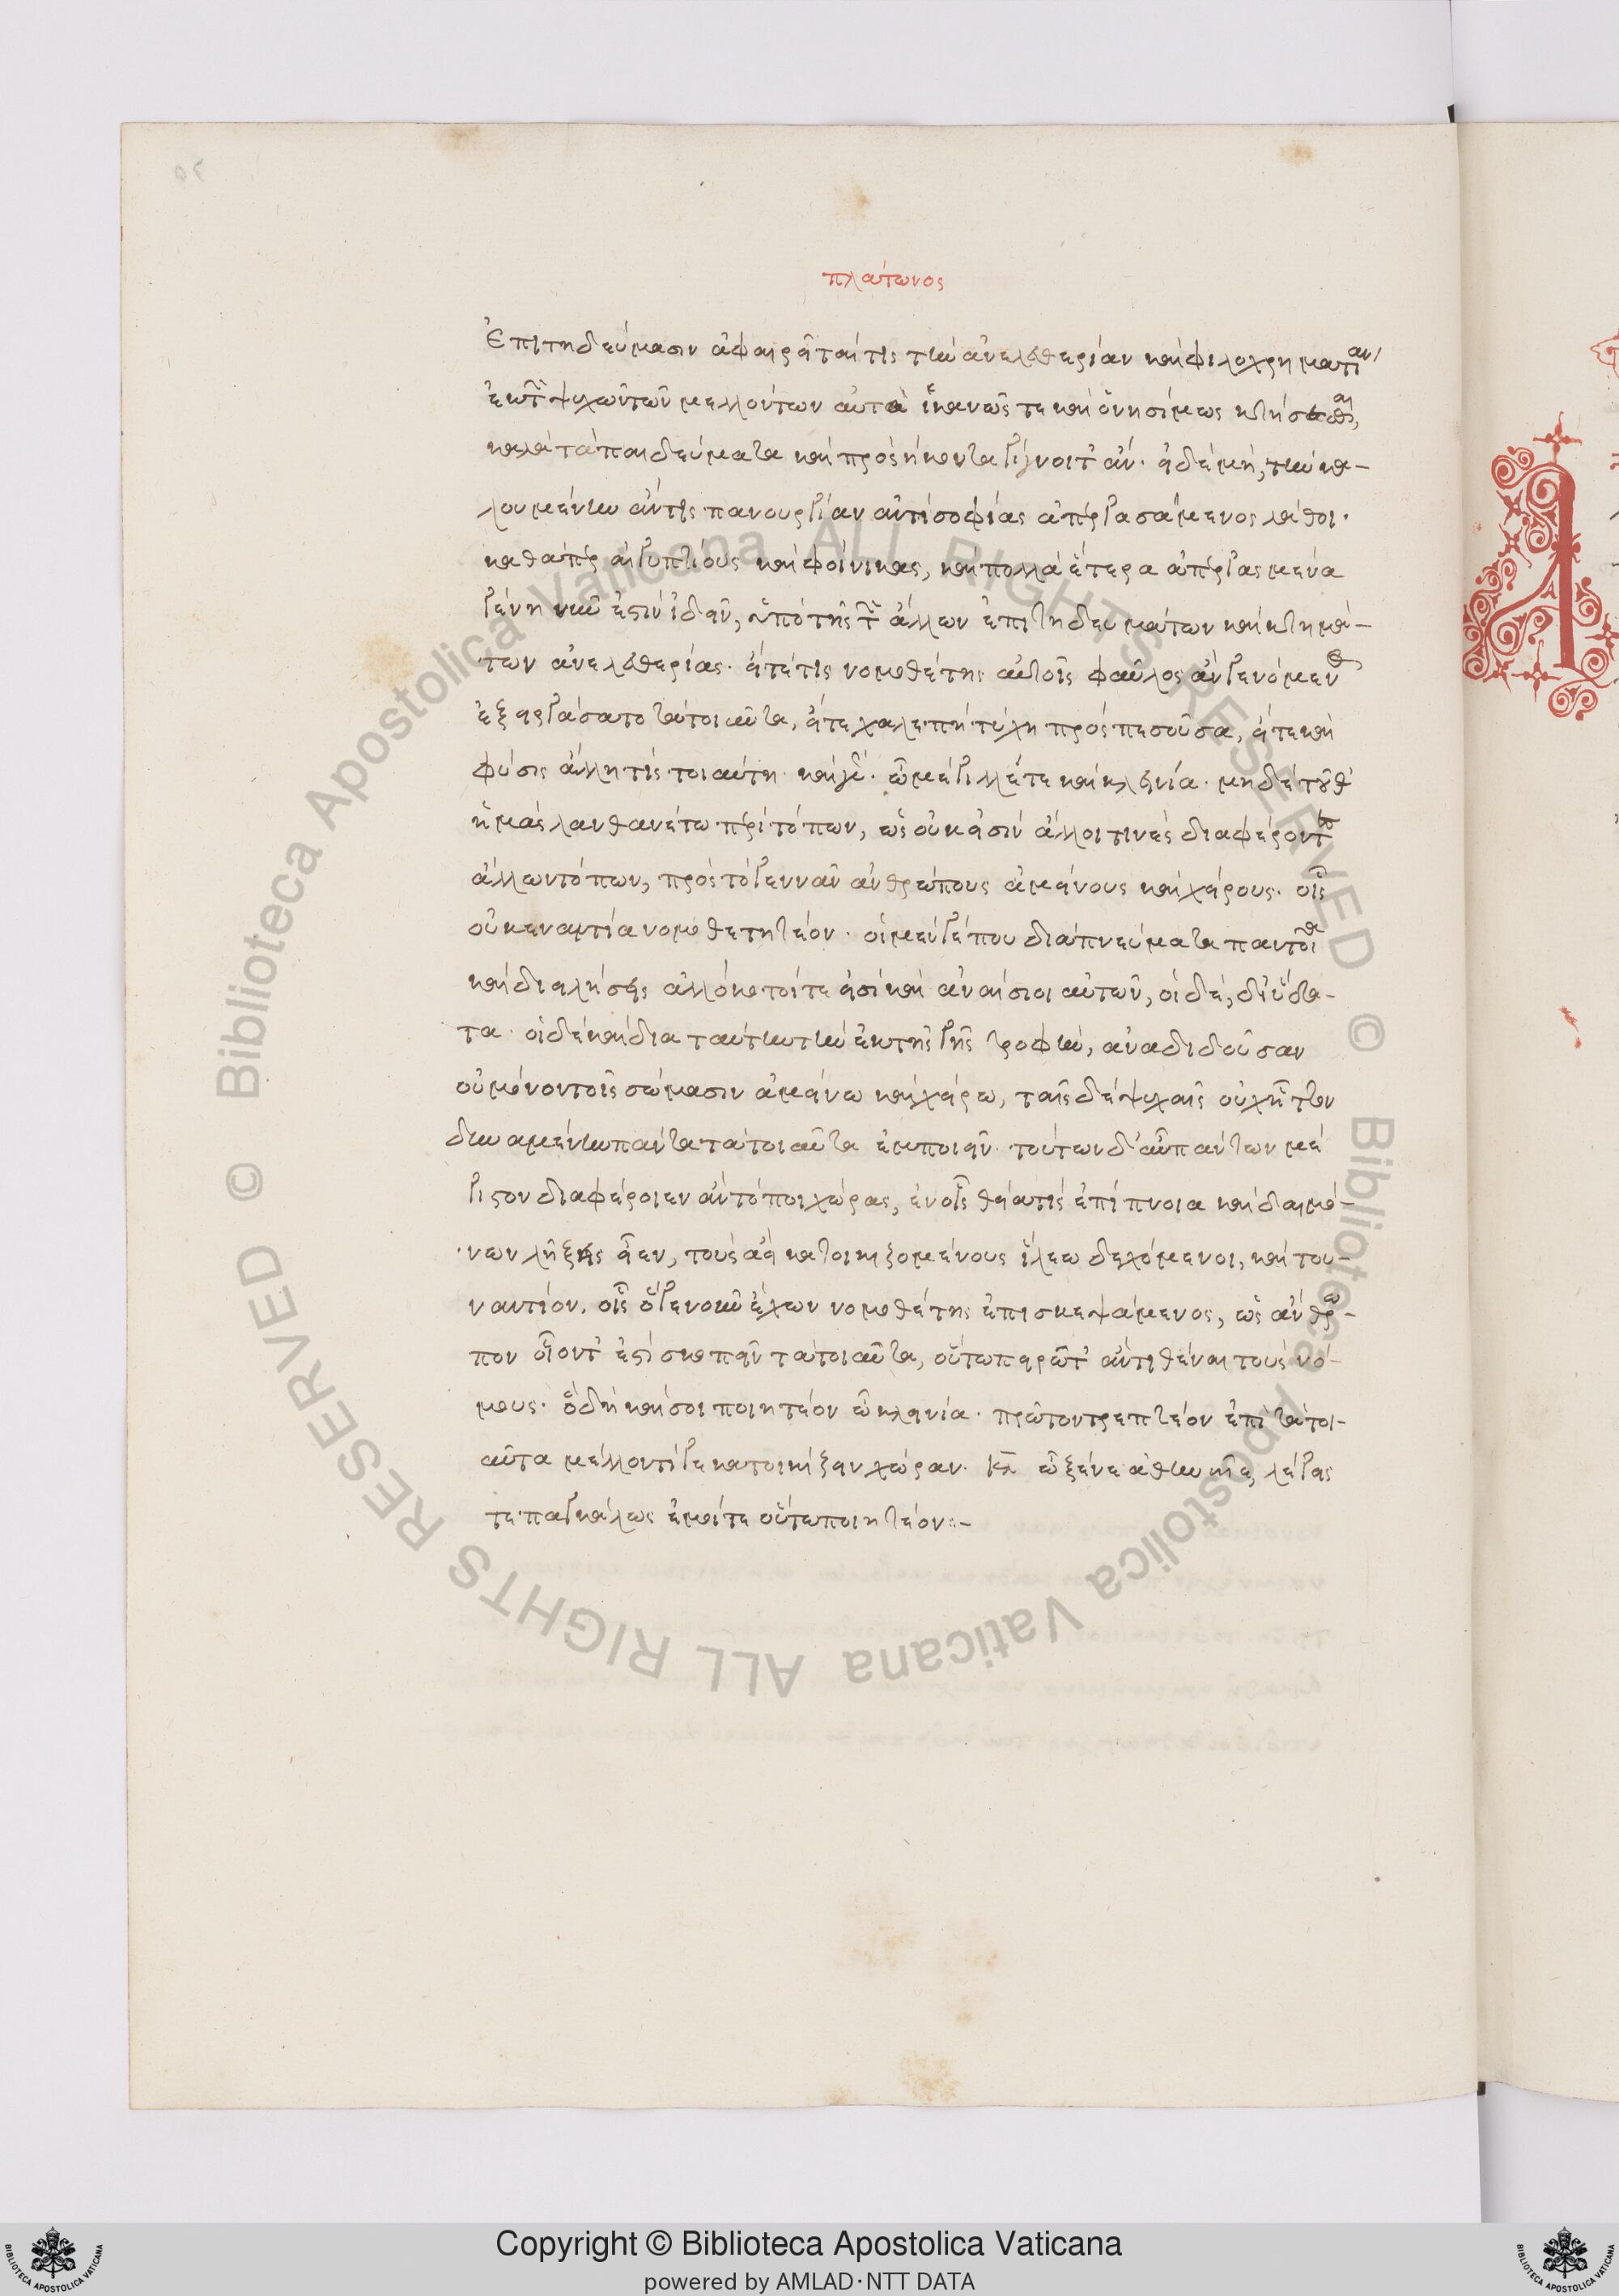 πλάτωνος
ἐπιτηδεύμασιν ἀφαιρῆται τις τὴν ἀνελευθερίαν καὶ φιλοχρηματίαν
ἐκ τῶν ψυχῶν τῶν μελλόντων αὐτὰ ἱκανῶς τε καὶ ὀνησίμως κτήσεσθαι,
καλὰ τὰ παιδεύματα καὶ προσήκοντα γίγνοιτ' ἄν· εἰ δὲ μὴ, τὴν κα-
λουμένην ἄν τις πανουργίαν ἀντὶ σοφίας ἀπεργασάμενος λάθοι·
καθάπερ αἰγυπτίους καὶ φοίνικας, καὶ πολλὰ ἕτερα ἀπειργασμένα
γένη νῦν ἐστὶν ἰδεῖν, ὑπὸ τῆς τῶν ἄλλων ἐπιτηδευμάτων καὶ κτημά-
των ἀνελευθερίας· εἴτέ τις νομοθέτης αὐτοῖς φαῦλος ἂν γενόμενος
ἐξειργάσατο τὰ τοιαῦτα, εἴτε χαλεπὴ τύχη προσπεσοῦσα, εἴτε καὶ
φύσις ἄλλη τὶς τοιαύτη· καὶ γὰρ· ὦ μέγιλλέ τε καὶ κλεινία· μηδὲ τοῦθ'
ἡμᾶς λανθανέτω περὶ τόπων, ὡς οὐκ εἰσὶν ἄλλοι τινὲς διαφέροντες
ἄλλων τόπων, πρὸς τὸ γεννᾶν ἀνθρώπους ἀμείνους καὶ χείρους· οἷς
οὐκ ἐναντία νομοθετητέον· οἱ μέν γέ που διὰ πνεύματα παντοῖα
καὶ δι' εἰλήσεις ἀλλόκοτοί τε εἰσὶ καὶ ἀναίσιοι αὐτῶν, οἱ δὲ, δι' ὕδα-
τα· οἱ δὲ καὶ διὰ ταύτην τὴν ἐκ τῆς γῆς τροφὴν, ἀναδιδοῦσαν
οὐ μόνον τοῖς σώμασιν ἀμείνω καὶ χείρω, ταῖς δὲ ψυχαῖς οὐχ ἧττον
δυναμένην πάντα τὰ τοιαῦτα ἐμποιεῖν· τούτων δ' αὖ πάντων μέ
γιστον διαφέροιεν ἂν τόποι χώρας, ἐν οἷς θεία τὶς ἐπίπνοια καὶ δαιμό-
νων λήξεις εἶεν, τοὺς ἀεὶ κατοικιζομένους ἵλεῳ δεχόμενοι, καὶ του-
ναντίον. οἷς ὅ γε νοῦν ἔχων νομοθέτης ἐπισκεψάμενος, ὡς ἄνθρω-
πον οἷον τ' ἐστὶ σκοπεῖν τὰ τοιαῦτα, οὕτω πειρῷτ' ἂν τιθέναι τοὺς νό-
μους· ὃ δὴ καὶ σοὶ ποιητέον ὦ κλεινία· πρῶτον τρεπτέον ἐπὶ τὰ τοι-
αῦτα μέλλοντί γε κατοικίζειν χώραν. Κλ ὦ ξένε ἀθηναῖε, λέγεις
τε παγκάλως ἐμοί τε οὕτω ποιητέον:-
Copyright © Biblioteca Apostolica Vaticana
powered by AMLAD·NTT DATA
© Biblioteca Apostolica Vaticana ALL RIGHTS RESERVED © Biblioteca Apostolica Vaticana ALL RIGHTS RESERVED
BIBLIOTECA APOSTOLICA VATICANA
BIBLIOTECA APOSTOLICA VATICANA